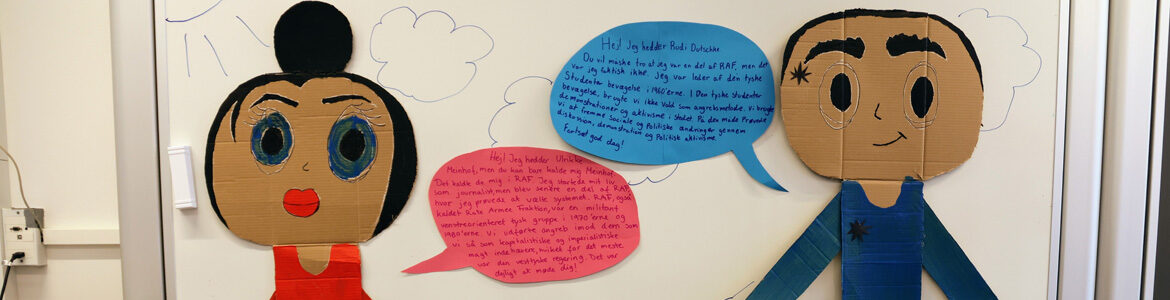 Hej! Jeg hedder Rudi Dutschke
Du vil måske tro at jeg var en del af RAF, men det
var jeg faktisk ikke. Jeg var leder af den tyske
Studenter bevægelse i 1960'erne. I Den tyske studenter
bevægelse, brugte vi ikke vold som angrebsmetode. Vi brugte
demonstrationer og aktivisme i stedet. På den måde Prøvede
vi at fremme Sociale og Politiske ændringer gennem
diskussion, demonstration og Politisk aktivisme.
Fortsat god dag!
Hej! Jeg hedder Ulrikke
Meinhof, men du kan bare kalde mig Meinhof.
Det kaldte de mig i RAF. Jeg startede mit liv
som journalist, men blev senere en del af RAF,
hvor jeg prøvede at vælte systemet. RAF, også
kaldet Rote Armee Fraktion, var en militant
venstreorienteret tysk gruppe i 1970'erne og
1980'erne. Vi udførte angreb imod dem som
vi så som kapitalistiske og imperialistiske
magt indehavere, hvilket for det meste
var den vesttyske regering. Det var
dejligt at møde dig!